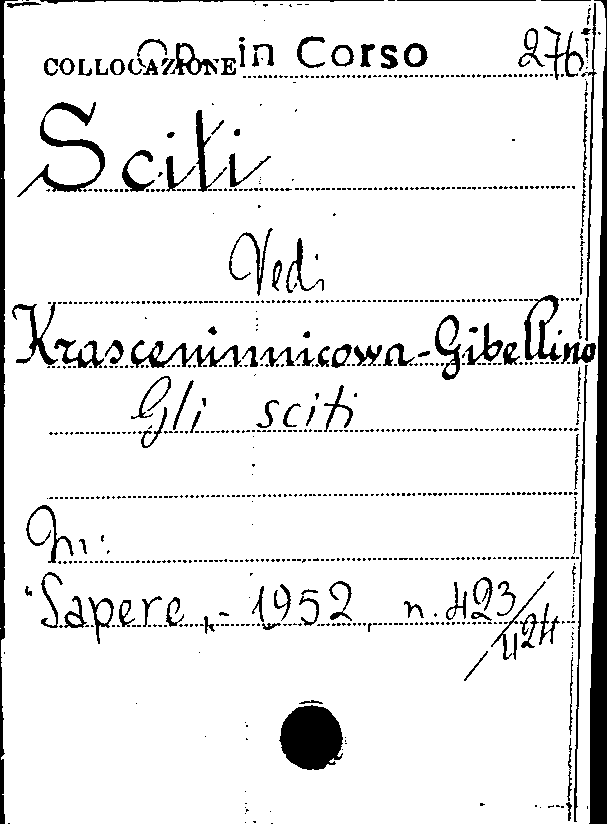 COLLOCAZIONE Op. in Corso 276
Sciti
Vedi
Krasceninnicowa-Gibellino
Gli sciti
In:
"Sapere„- 1952, n. 423/424